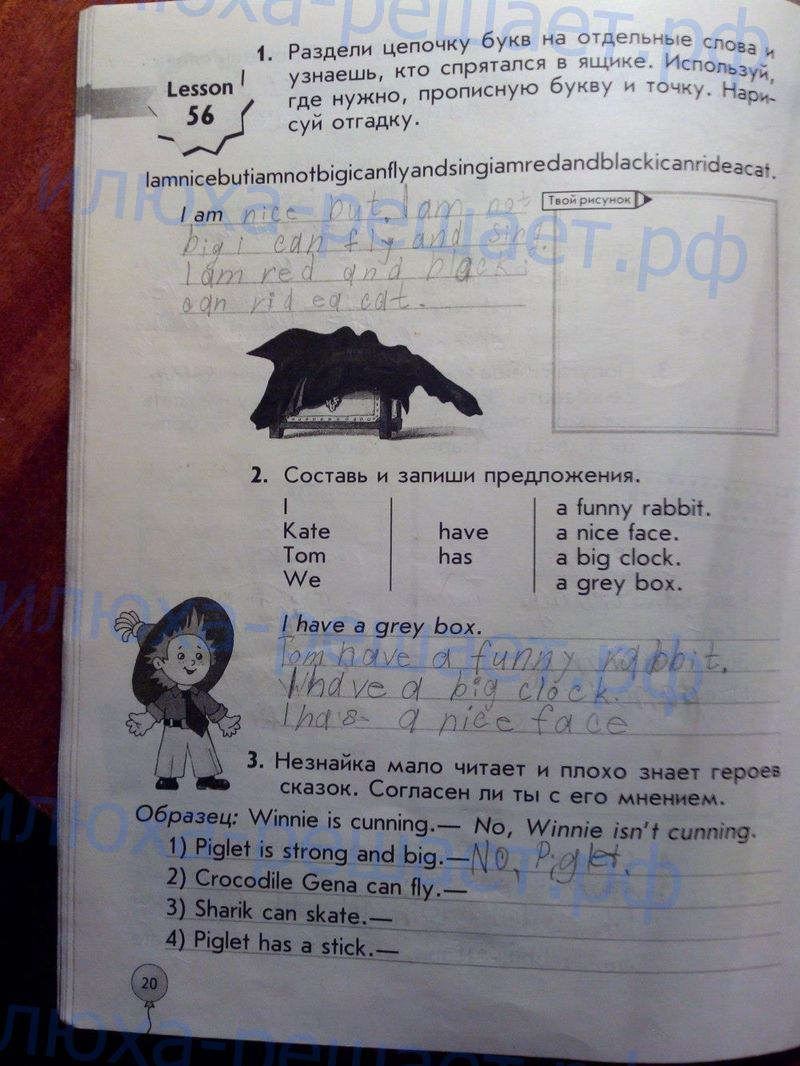 илюха-решает.рф
Lesson
56
1. Раздели цепочку букв на отдельные слова и
узнаешь, кто спрятался в ящике. Используй,
где нужно, прописную букву и точку. Нари-
суй отгадку.
Iamnicebutiamnotbigicanflyandsingiamredandblackicanrideacat.
илюха-решает.рф
I am nice but. I am not
big i can fly and sing.
I am red and black i
can rid ea cat.
Твой рисунок
2. Составь и запиши предложения.
I
Kate
Tom
We
have
has
a funny rabbit.
a nice face.
a big clock.
a grey box.
илюха-решает.рф
I have a grey box.
Tom have a funny rabbit.
I have a big clock.
I has a nice face
3. Незнайка мало читает и плохо знает героев
сказок. Согласен ли ты с его мнением.
Образец: Winnie is cunning.— No, Winnie isn't cunning.
илюха-решает.рф
1) Piglet is strong and big.— No, Piglet.
2) Crocodile Gena can fly.—
3) Sharik can skate.—
4) Piglet has a stick.—
20
илюха-решает.рф